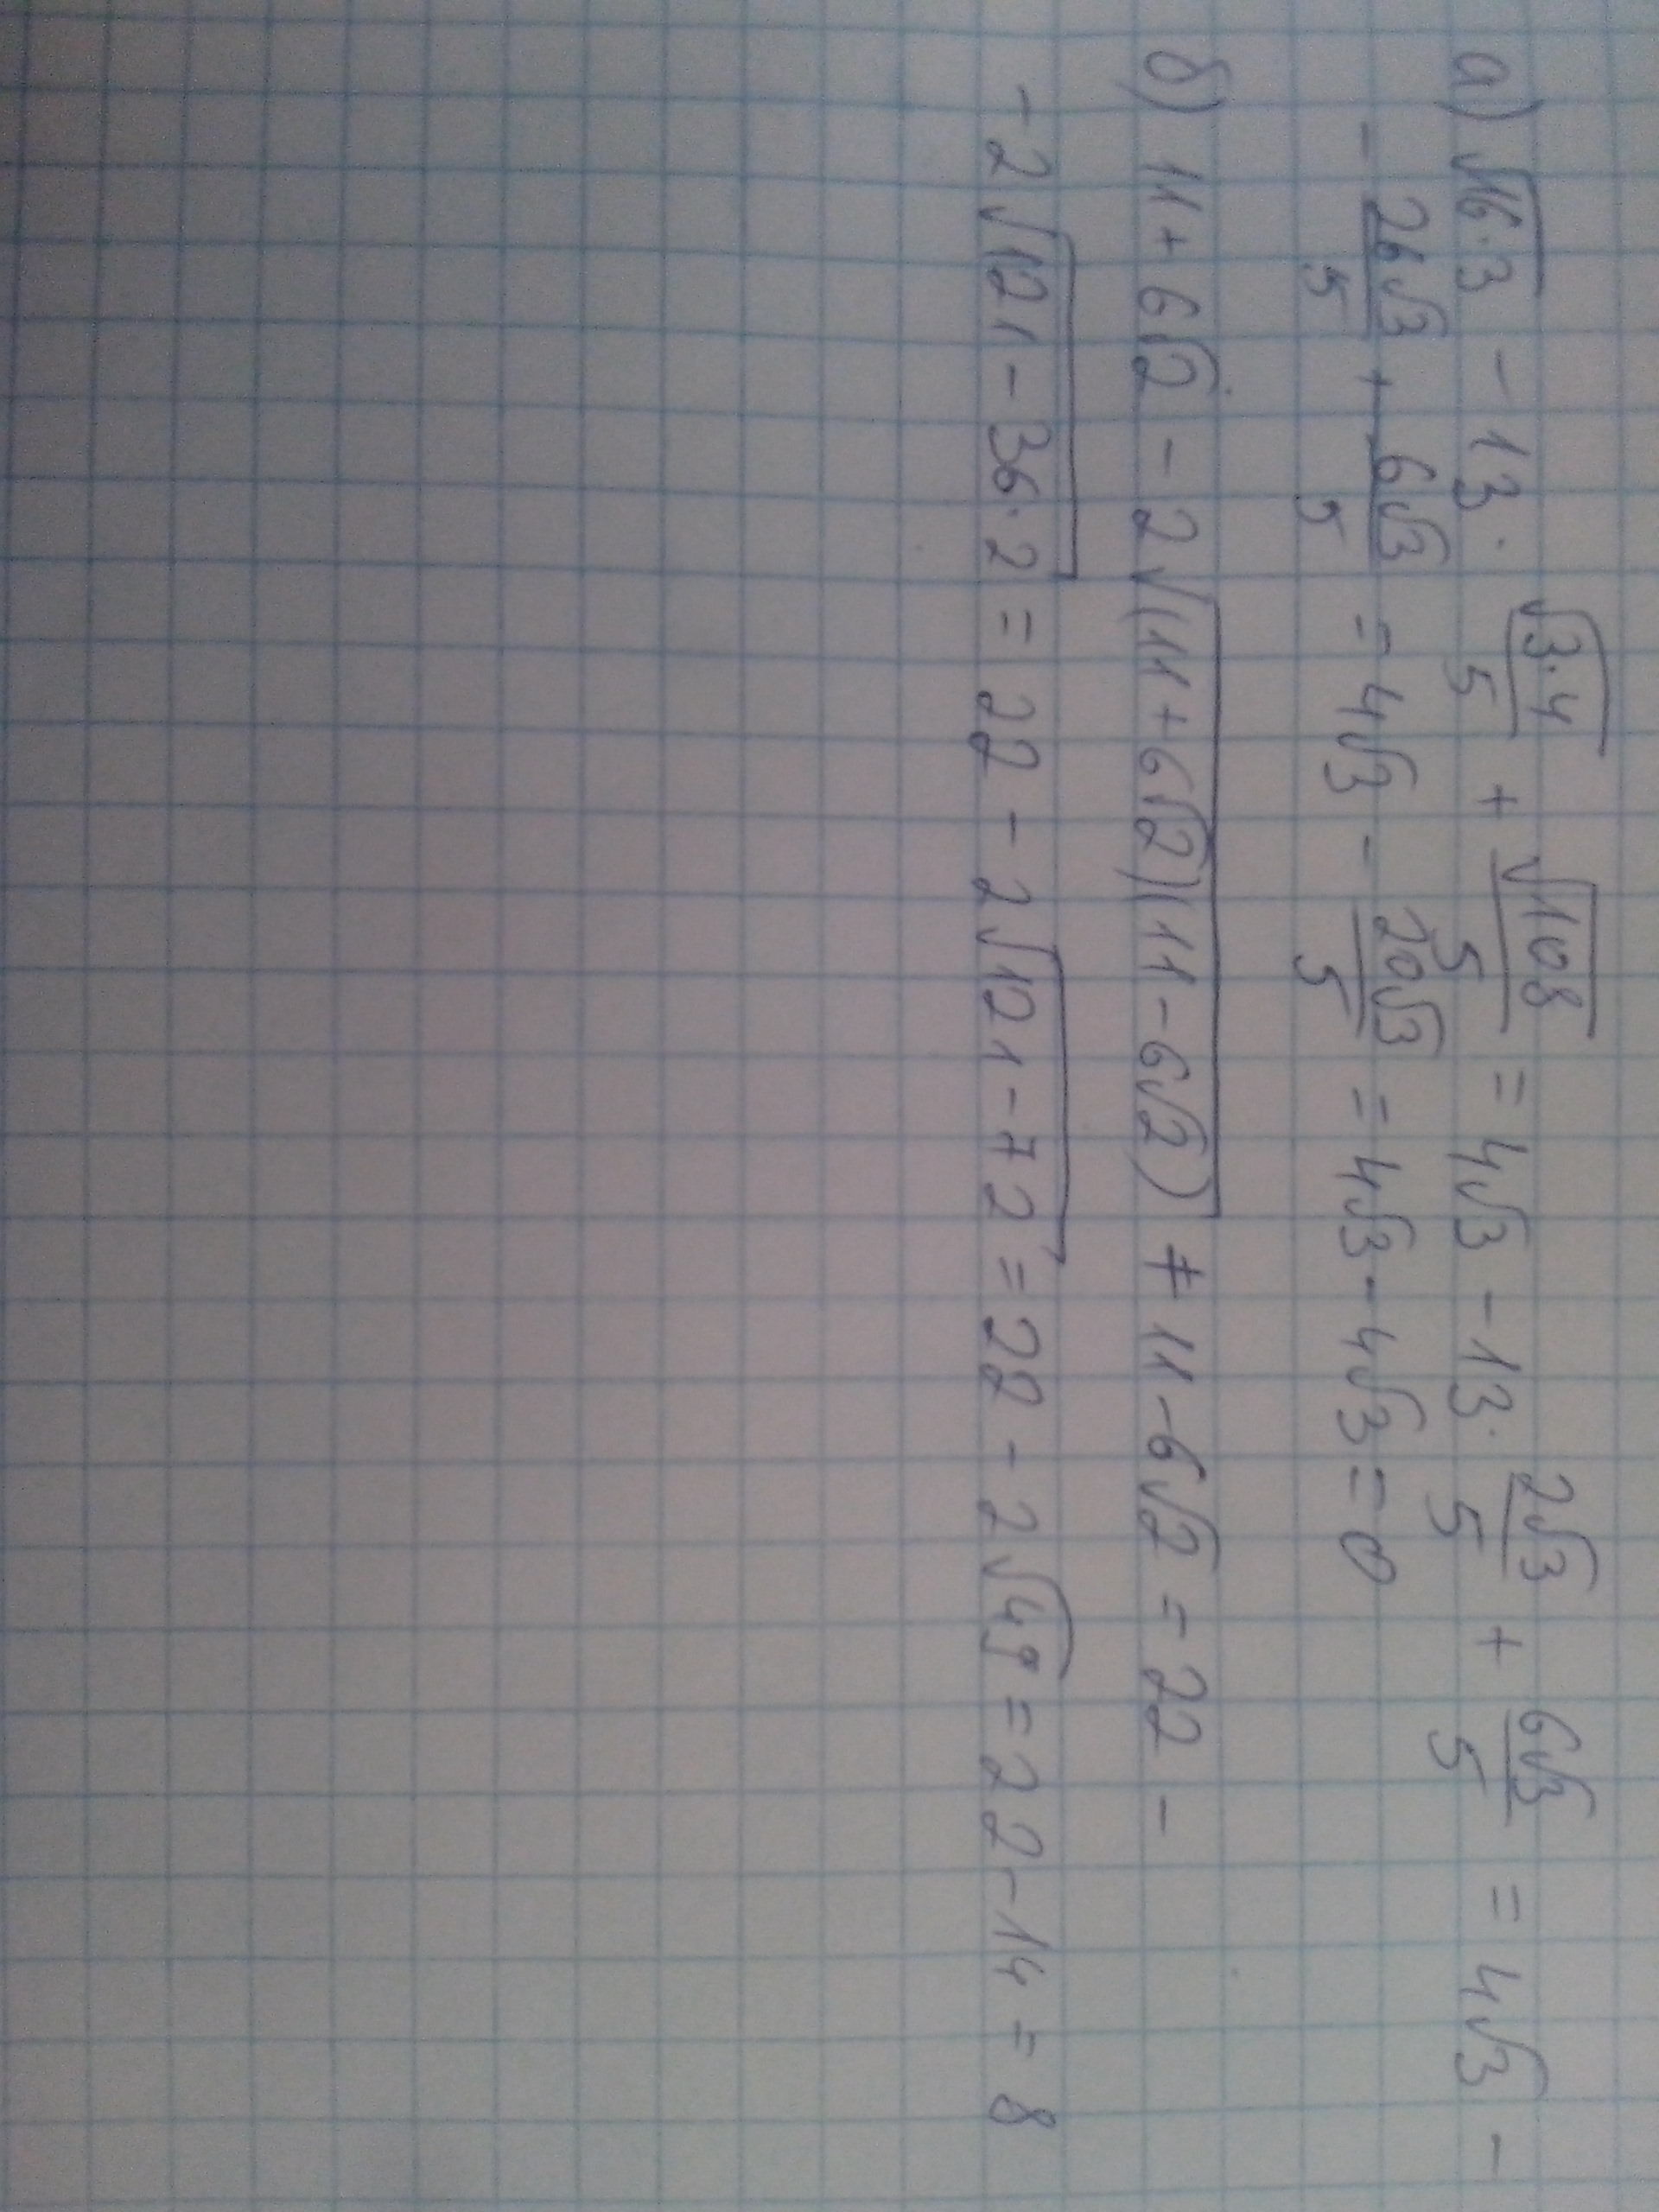 а) √16·3 − 13 · √3·4/5 + √108/5 = 4√3 − 13 · 2√3/5 + 6√3/5 = 4√3 −
− 26√3/5 + 6√3/5 = 4√3 − 20√3/5 = 4√3 − 4√3 = 0
б) 11 + 6√2 − 2√(11+6√2)(11−6√2) + 11 − 6√2 = 22 −
− 2√121 − 36·2 = 22 − 2√121 − 72 = 22 − 2√49 = 22 − 14 = 8